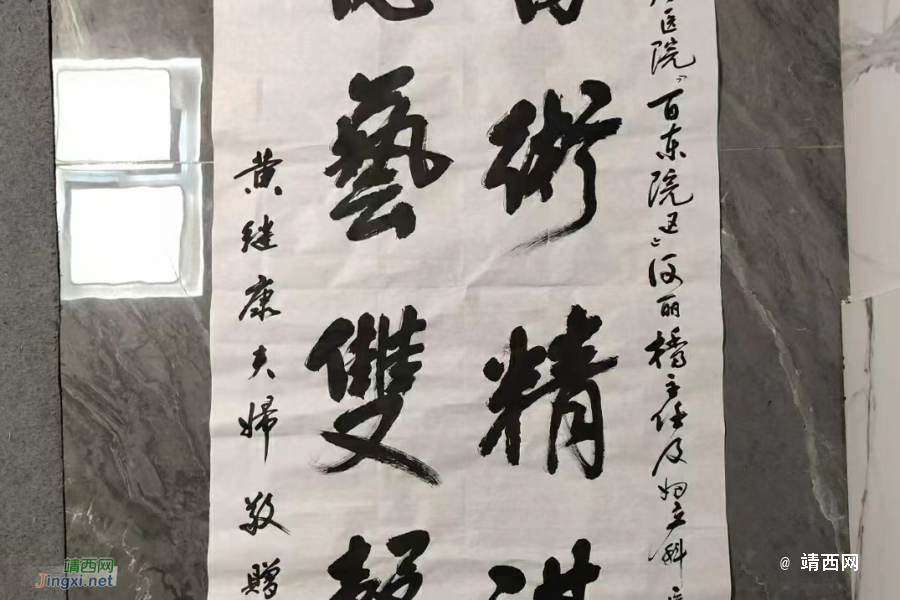 医院“百东院区”
丽桥主任及妇产科
術精
藝雙馨
黄继康夫婦敬贈
靖西网
Jingxi.net
@ 靖西网